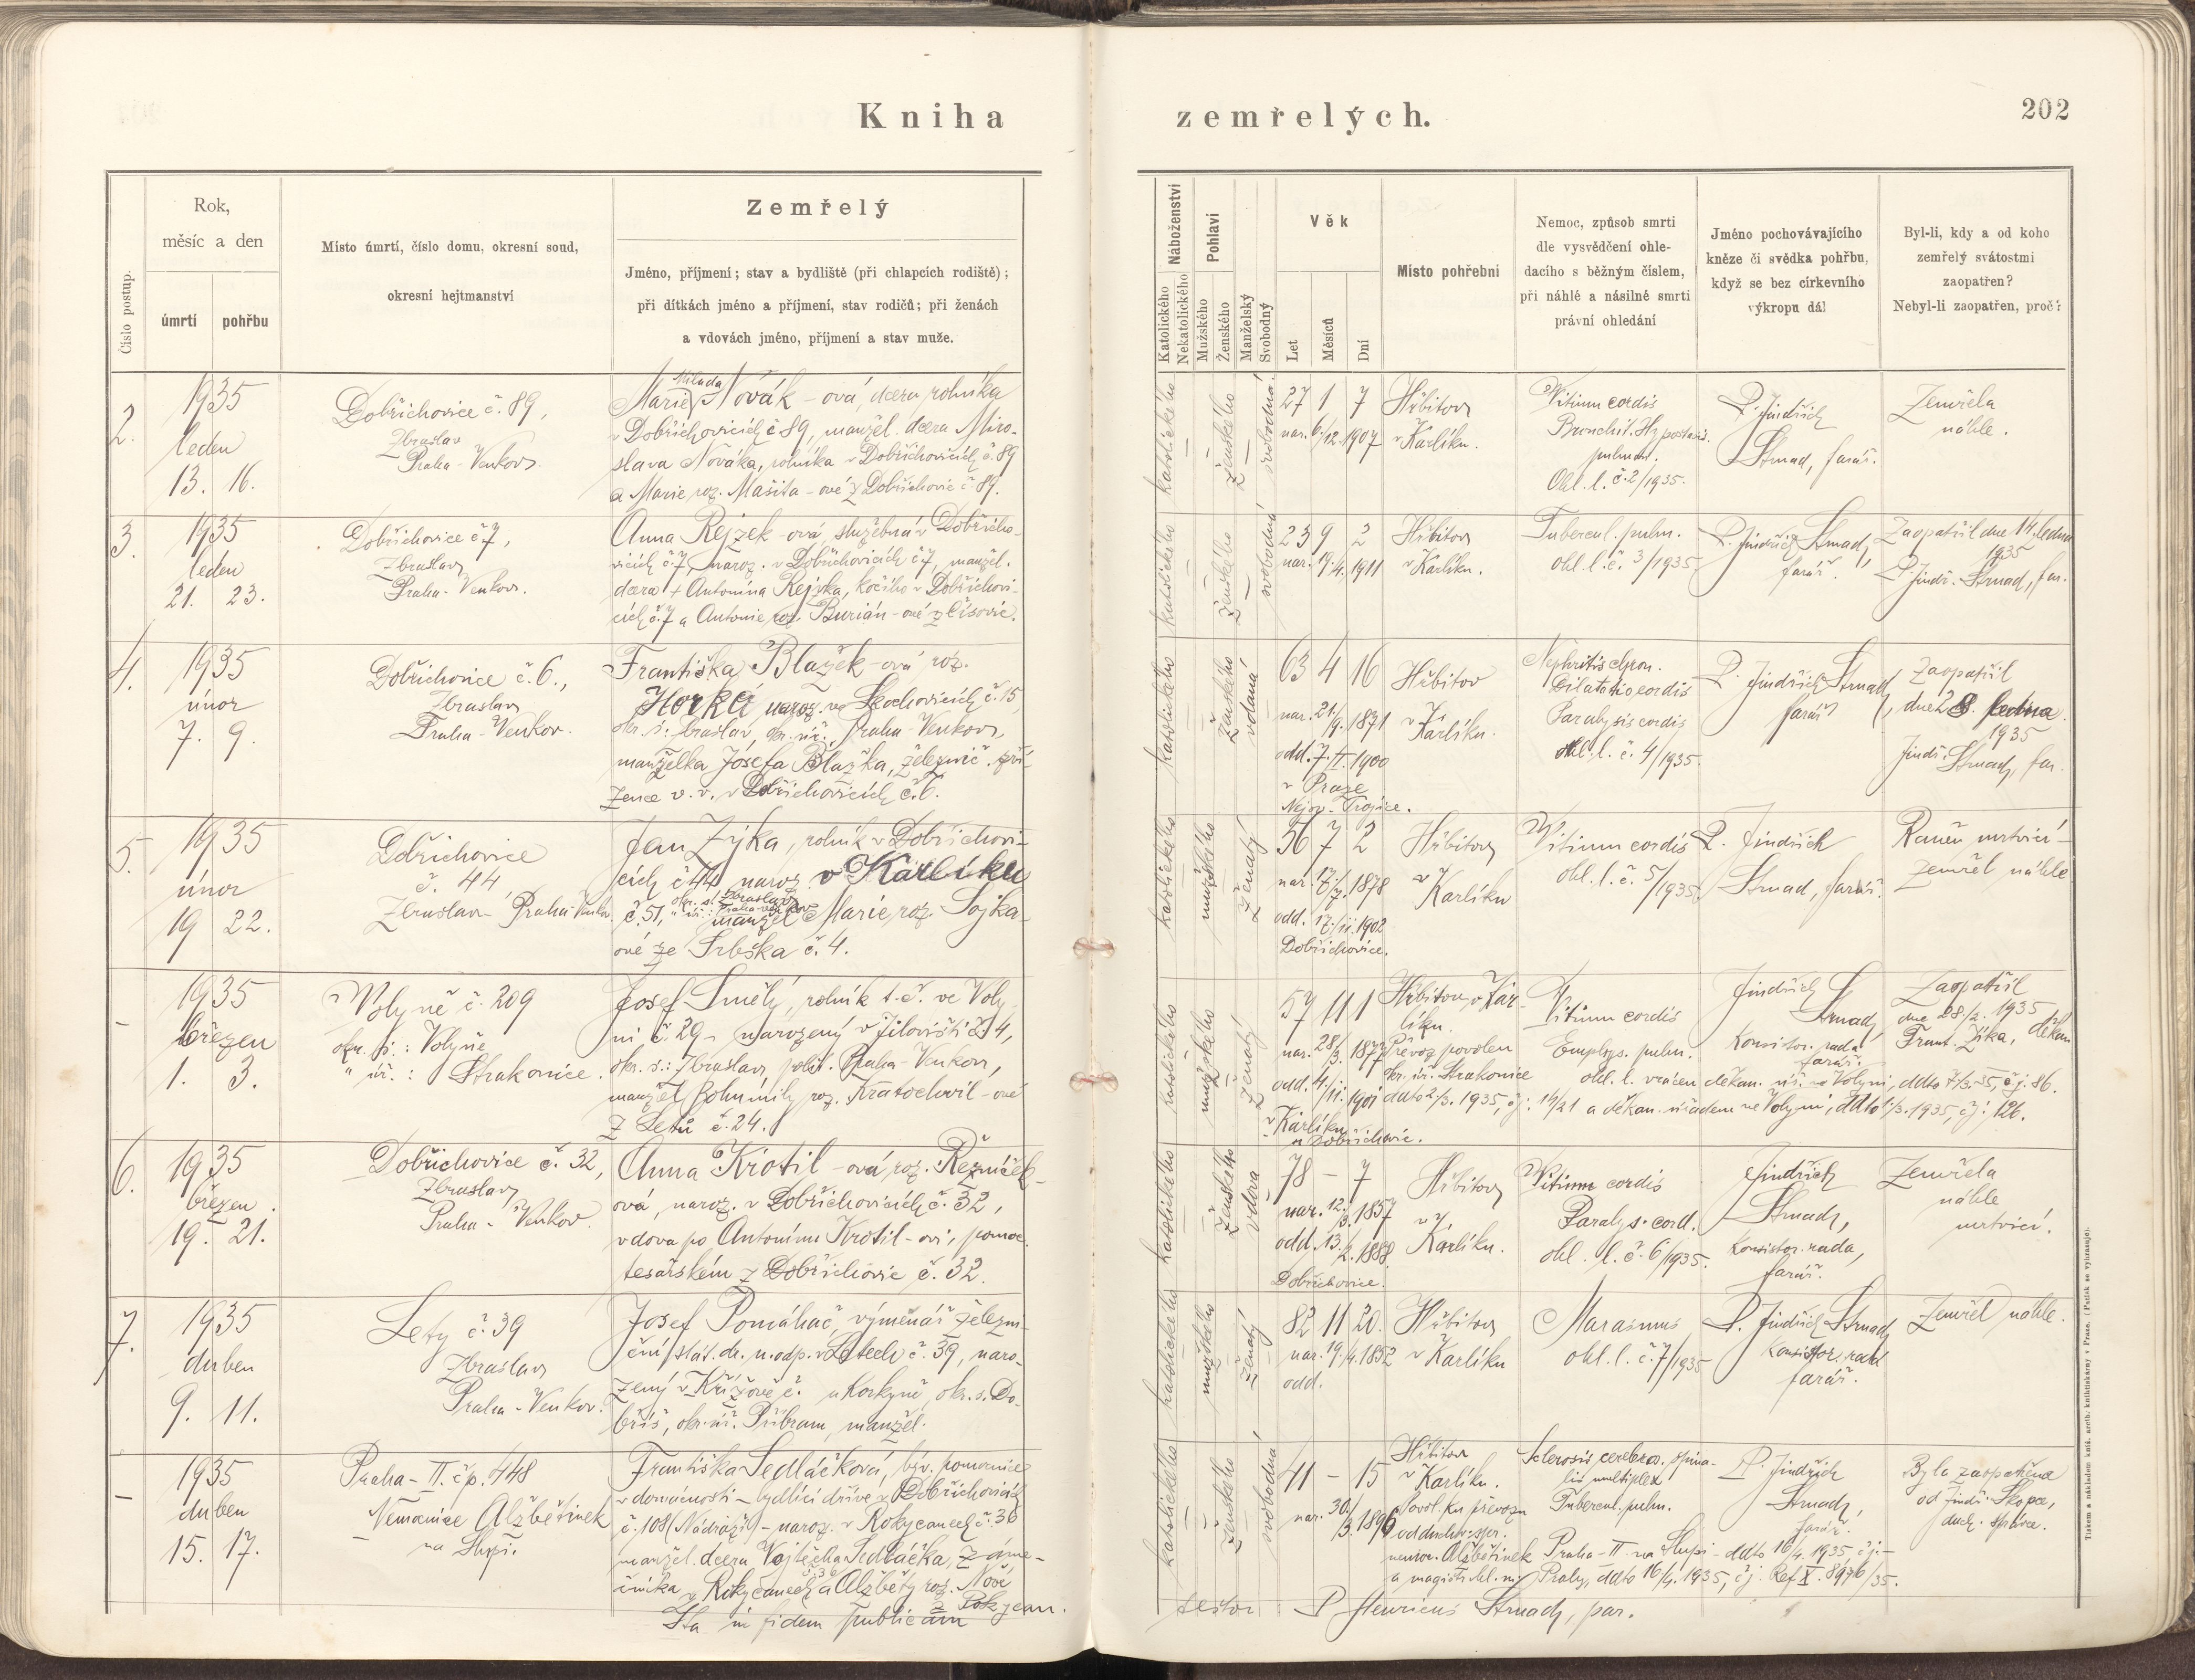 Kniha
zemřelých.
202
Číslo postup.
Rok,
měsíc a den
úmrtí
pohřbu
Místo úmrtí, číslo domu, okresní soud,
okresní hejtmanství
Zemřelý
Jméno, příjmení; stav a bydliště (při chlapcích rodiště);
při dítkách jméno a příjmení, stav rodičů; při ženách
a vdovách jméno, příjmení a stav muže.
Náboženství
Katolického
Nekatolického
Pohlaví
Mužského
Ženského
Manželský
Svobodný
Věk
Let
Měsíců
Dní
Místo pohřební
Nemoc, způsob smrti
dle vysvědčení ohle-
dacího s běžným číslem,
při náhlé a násilné smrti
právní ohledání
Jméno pochovávajícího
kněze či svědka pohřbu,
když se bez církevního
výkropu dál
Byl-li, kdy a od koho
zemřelý svátostmi
zaopatřen?
Nebyl-li zaopatřen, proč?
2.
1935
leden
13. 16.
Dobřichovice č. 89,
Zbraslav
Praha-Venkov.
Milada
Marie Novák-ová, dcera rolníka
v Dobřichovicích č 89, manžel. dcera Miro-
slava Nováka, rolníka v Dobřichovicích č. 89
a Marie roz. Mašita-ové z Dobřichovic č. 89.
katolického
ženského
svobodná
27 1 7
nar. 6/12. 1907
Hřbitov
v Karlíku.
Vitium cordis
Bronchit. Hypostasis.
pulmon.
Ohl. l. č. 2/1935.
P. Jindřich
Strnad, farář.
Zemřela
náhle.
3.
1935
leden
21. 23.
Dobřichovice č 7,
Zbraslav
Praha-Venkov.
Anna Rejzek-ová, služebná v Dobřicho-
vicích č 7, naroz. v Dobřichovicích č 7, manžel.
dcera + Antonína Rejzka, kočího v Dobřichovi-
cích č. 7 a Antonie roz. Burián-ové z Čísovic.
katolického
ženského
svobodná
23 9 2
nar. 19./4. 1911
Hřbitov
v Karlíku.
Tubercul. pulm.
ohl. l. č. 3/1935.
P. Jindřich Strnad,
farář.
Zaopatřil dne 14. ledna
1935
P. Jindř. Strnad, far.
4.
1935
únor
7. 9.
Dobřichovice č. 6.,
Zbraslav
Praha-Venkov.
Františka Blažek-ová roz.
Horká naroz. ve Skochovicích č. 15,
okr. s.: Zbraslav, okr. úř.: Praha-Venkov,
manželka Josefa Blažka, železnič. zří-
zence v. v. v Dobřichovicích č. 6.
katolického
ženského
vdaná
63 4 16
nar. 21/9. 1871
odd. 7. II. 1900
v Praze
Nejsv. Trojice.
Hřbitov
v Karlíku.
Nephritis chron.
Dilatatio cordis
Paralysis cordis
ohl. l. č. 4/1935.
P. Jindřich Strnad,
farář
Zaopatřil
dne 28. ledna
1935
Jindř. Strnad, far.
5.
1935
únor
19 22.
Dobřichovice
č. 44,
Zbraslav - Praha-Venkov
Jan Zýka, rolník v Dobřichovi-
cích č 44 naroz. v Karlíku
okr. s. Zbraslav
" úř.: Praha-venkov
č. 51, manžel Marie roz. Sojka-
ové ze Srbska č. 4.
katolického
mužského
ženatý
56 7 2
nar. 17./7. 1878
odd. 17./11. 1902
Dobřichovice.
Hřbitov
v Karlíku
Vitium cordis
ohl. l. č. 5/1935.
P. Jindřich
Strnad, farář.
Raněn mrtvicí-
zemřel náhle
-
1935
březen
1. 3.
Volyně č. 209
okr. s.: Volyně
" úř.: Strakonice.
Josef Smělý, rolník t. č. ve Voly-
ni č. 29 - narozený v Jílovišti č. 4,
okr. s.: Zbraslav, polit. Praha-Venkov,
manžel Bohumily roz. Kratochvíl-ové
z Letů č. 24.
katolického
mužského
ženatý
57 11 1
nar. 28/3. 1877
odd. 4./11. 1901
v Karlíku
u Dobřichovic.
Hřbitov v Kar-
líku.
Převoz povolen
okr. úř. Strakonice
dato 2/3. 1935, čj: 19/21 a děkan. úřadem ve Volyni, ddto 1/3. 1935, čj: 126.
Vitium cordis
Emphys. pulm.
ohl. l. vrácen děkan. úř. ve Volyni, ddto 7/3. 35, čj. 86.
Jindřich
Strnad,
Konsistor. rada
farář.
Zaopatřil
dne 28/2. 1935
Frant. Zíka, děkan
6.
1935
březen.
19. 21.
Dobřichovice č. 32,
Zbraslav
Praha-Venkov.
Anna Krotil-ová, roz. Řezníček-
ová, naroz. v Dobřichovicích č. 32,
vdova po Antonínu Krotil-ovi, pomoc.
tesařském z Dobřichovic č. 32.
katolického
ženského
vdova
78 - 7
nar. 12./3. 1857
odd. 13./2. 1888.
Dobřichovice.
Hřbitov
v Karlíku.
Vitium cordis
Paralys. cord.
ohl. l. č. 6/1935.
Jindřich
Strnad,
Konsistor. rada,
farář.
Zemřela
náhle
mrtvicí.
7.
1935
duben
9. 11.
Lety č. 39
Zbraslav
Praha-Venkov.
Josef Pomáhač, výměnář železni-
ční stát. dr. n. odp. v Letech č. 39, naro-
zený v Křížově č. u Korkyně, okr. s. Do-
bříš, okr. úř. Příbram, manžel.
katolického
mužského
ženatý
82 11 20.
nar. 19./4. 1852
odd.
Hřbitov
v Karlíku
Marasmus
ohl. l. č. 7/1935
P. Jindřich Strnad
Konsistor. rad
farář.
Zemřel náhle.
-
1935
duben
15. 17.
Praha-II. čp. 448
Nemocnice Alžbětinek
na Slupi.
Františka Sedláčková, býv. pomocnice
v domácnosti - bydlící dříve v Dobřichovicích
č. 108 (Nádraží) - naroz. v Rokycanech č. 36
manžel. dcera Vojtěcha Sedláčka, záme-
čníka v Rokycanech a Alžběty roz. Nové
z Rokycan.
katolického
ženského
svobodná
41 - 15
nar. 30/3. 1896
Hřbitov
v Karlíku.
Povol. ku převozu
od duch. správ.
nemoc. Alžbětinek Praha-II na Slupi - ddto 16/4. 1935, čj: -
a magistr. hl. m. Prahy, ddto 16/4. 1935, čj. Ref X. 8976/35.
Sclerosis cerebro. spina-
lis multiplex
Tubercul. pulm.
P. Jindřich
Strnad,
farář.
Byla zaopatřena
od Jindř. Skopce,
duch. správce.
Ita in fidem publicam
testor: P. Henricus Strnad, par.
Tiskem a nákladem kníž. arcib. knihtiskárny v Praze. (Patisk se vyhrazuje).